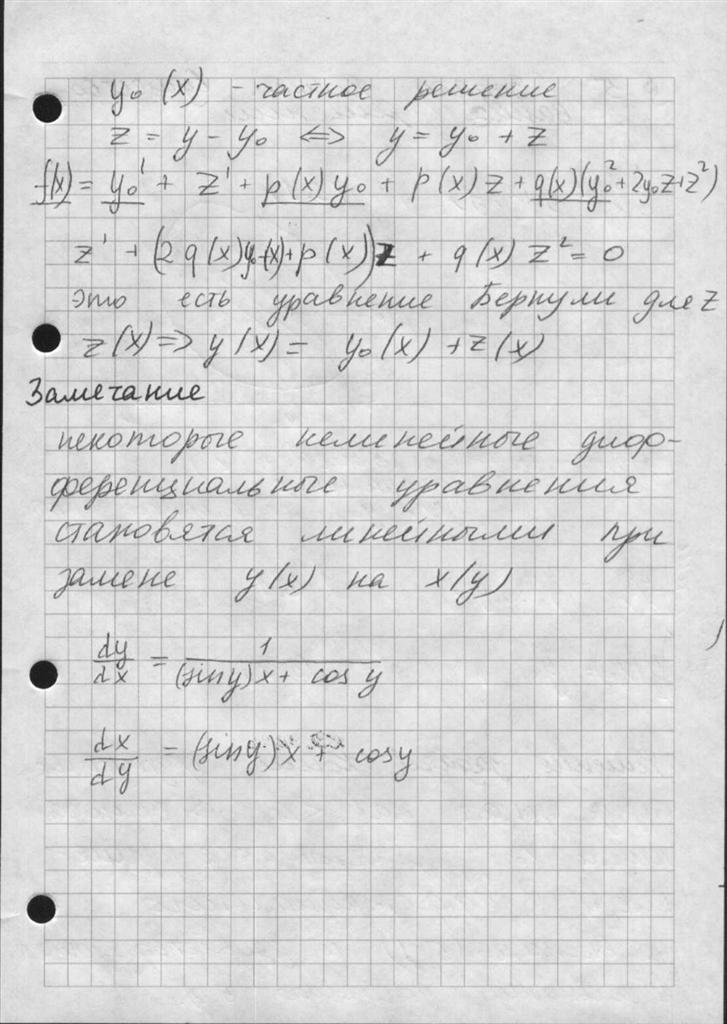 y₀ (x) - частное решение
z = y - y₀ ⇔ y = y₀ + z
f(x) = y₀' + z' + p(x)y₀ + p(x)z + q(x)(y₀² + 2y₀z + z²)
z' + (2q(x)y₀(x) + p(x))z + q(x)z² = 0
это есть уравнение Бернули для z
z(x) ⇒ y(x) = y₀(x) + z(x)
Замечание
некоторые нелинейные диф-
ференциальные уравнения
становятся линейными при
замене y(x) на x(y)
dy/dx = 1/((sin y)x + cos y)
dx/dy = (sin y)x + cos y